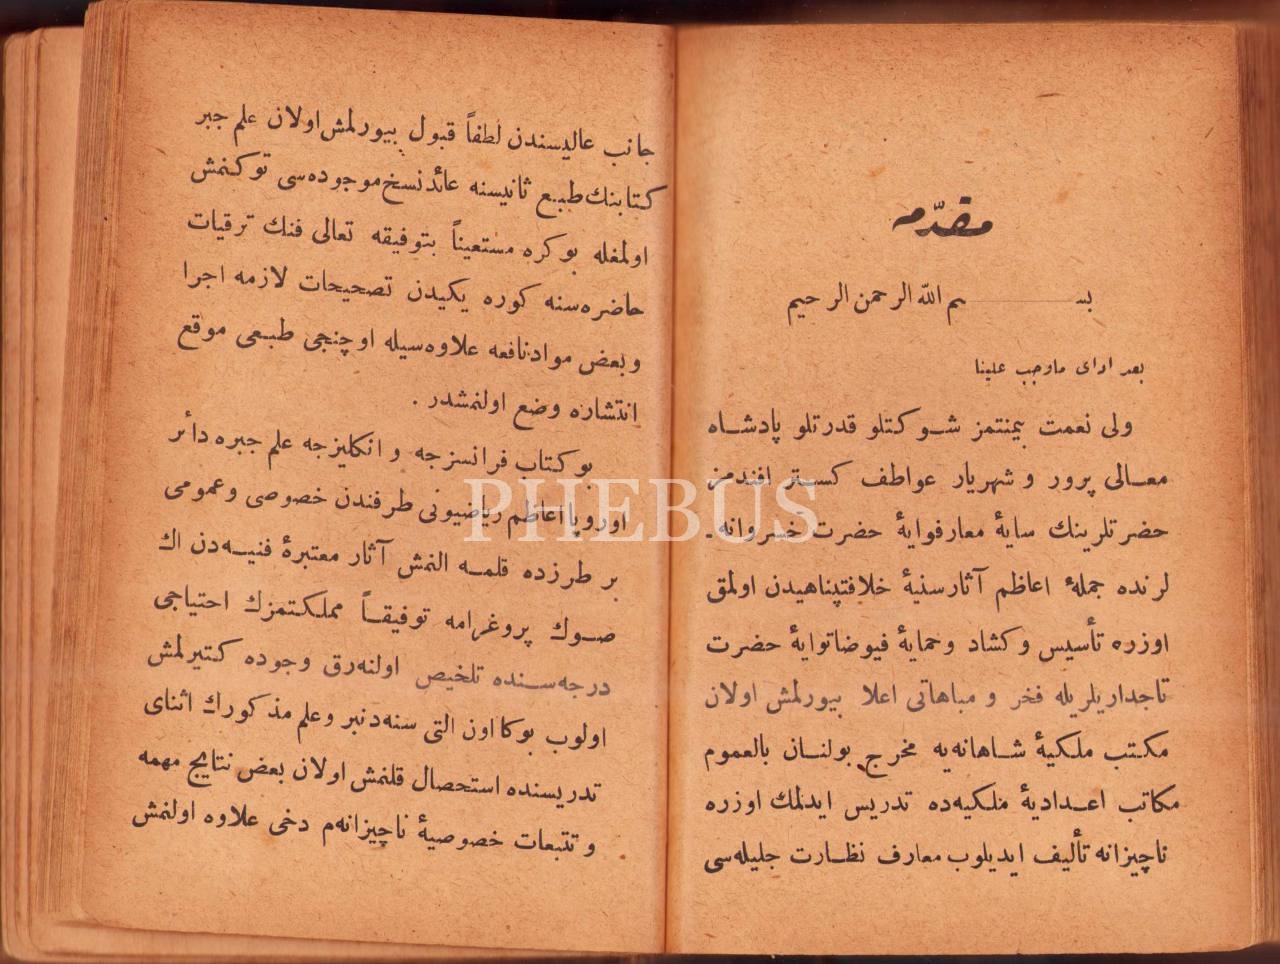 مقدّمه
بسم الله الرحمن الرحيم
بعد ادای ماوجب علینا
ولی نعمت بیمنتمز شوکتلو قدرتلو پادشاه
معالی پرور و شهریار عواطف کستر افندمز
حضرتلرینك سایهٔ معارفوایهٔ حضرت خسروانه‌ـ
لرنده جملهٔ اعاظم آثار سنیهٔ خلافتپناهیدن اولمق
اوزره تأسیس و کشاد و حمایهٔ فیوضاتوایهٔ حضرت
تاجداریلریله فخر و مباهاتی اعلا بیورلمش اولان
مکتب ملکیهٔ شاهانه‌یه مخرج بولنان بالعموم
مکاتب اعدادیهٔ ملکیه‌ده تدریس ایدلمك اوزره
ناچیزانه تألیف ایدیلوب معارف نظارت جلیله‌سی
جانب عالیسندن لطفاً قبول بیورلمش اولان علم جبر
کتابنك طبع ثانیسنه عائد نسخ موجوده‌سی توکنمش
اولمغله بوکره مستعیناً بتوفیقه تعالی فنك ترقیات
حاضره‌سنه کوره یکیدن تصحیحات لازمه اجرا
و بعض مواد نافعه علاوه‌سیله اوچنجی طبعی موقع
انتشاره وضع اولنمشدر .
بو کتاب فرانسزجه و انکلیزجه علم جبره دائر
اوروپا اعاظم ریاضیونی طرفندن خصوصی و عمومی
بر طرزده قلمه النمش آثار معتبرهٔ فنیه‌دن اك
صوك پروغرامه توفیقاً مملکتمزك احتیاجی
درجه‌سنده تلخیص اولنه‌رق وجوده کتیرلمش
اولوب بوکا اون التی سنه‌دنبر و علم مذکورك اثنای
تدریسنده استحصال قلنمش اولان بعض نتایج مهمه
و تتبعات خصوصیهٔ ناچیزانه‌م دخی علاوه اولنمش
PHEBUS